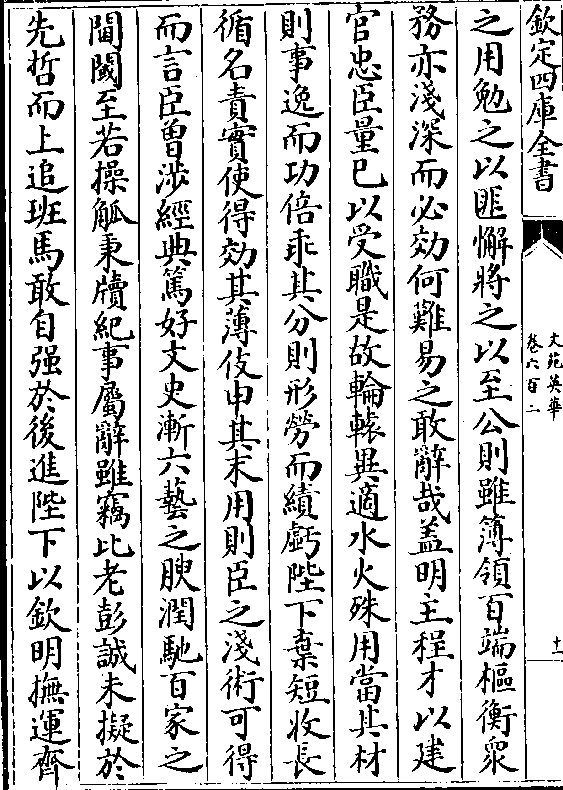 欽定四庫全書
文苑英華
卷六百二
十一
之用勉之以匪懈將之以至公則雖簿領百端樞衡衆
務亦淺深而必効何難易之敢辭哉盖明主程才以建
官忠臣量已以受職是故輪轅異適水火殊用當其材
則事逸而功倍乖其分則形勞而績虧陛下棄短收長
循名責實使得効其薄伎申其末用則臣之淺術可得
而言臣曽涉經典篤好文史漸六藝之腴潤馳百家之
閫閾至若操觚秉牘紀事屬辭雖竊比老彭誠未擬於
先哲而上追班馬敢自强於後進陛下以欽明撫運齊